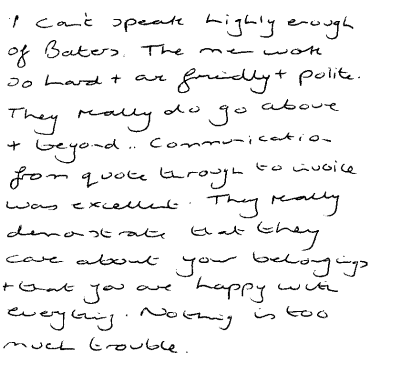 I can't speak highly enough
of Bakers. The men work
so hard + are friendly + polite.
They really do go above
+ beyond.. Communication
from quote through to invoice
was excellent. They really
demonstrate that they
care about your belongings
+ that you are happy with
everything. Nothing is too
much trouble.